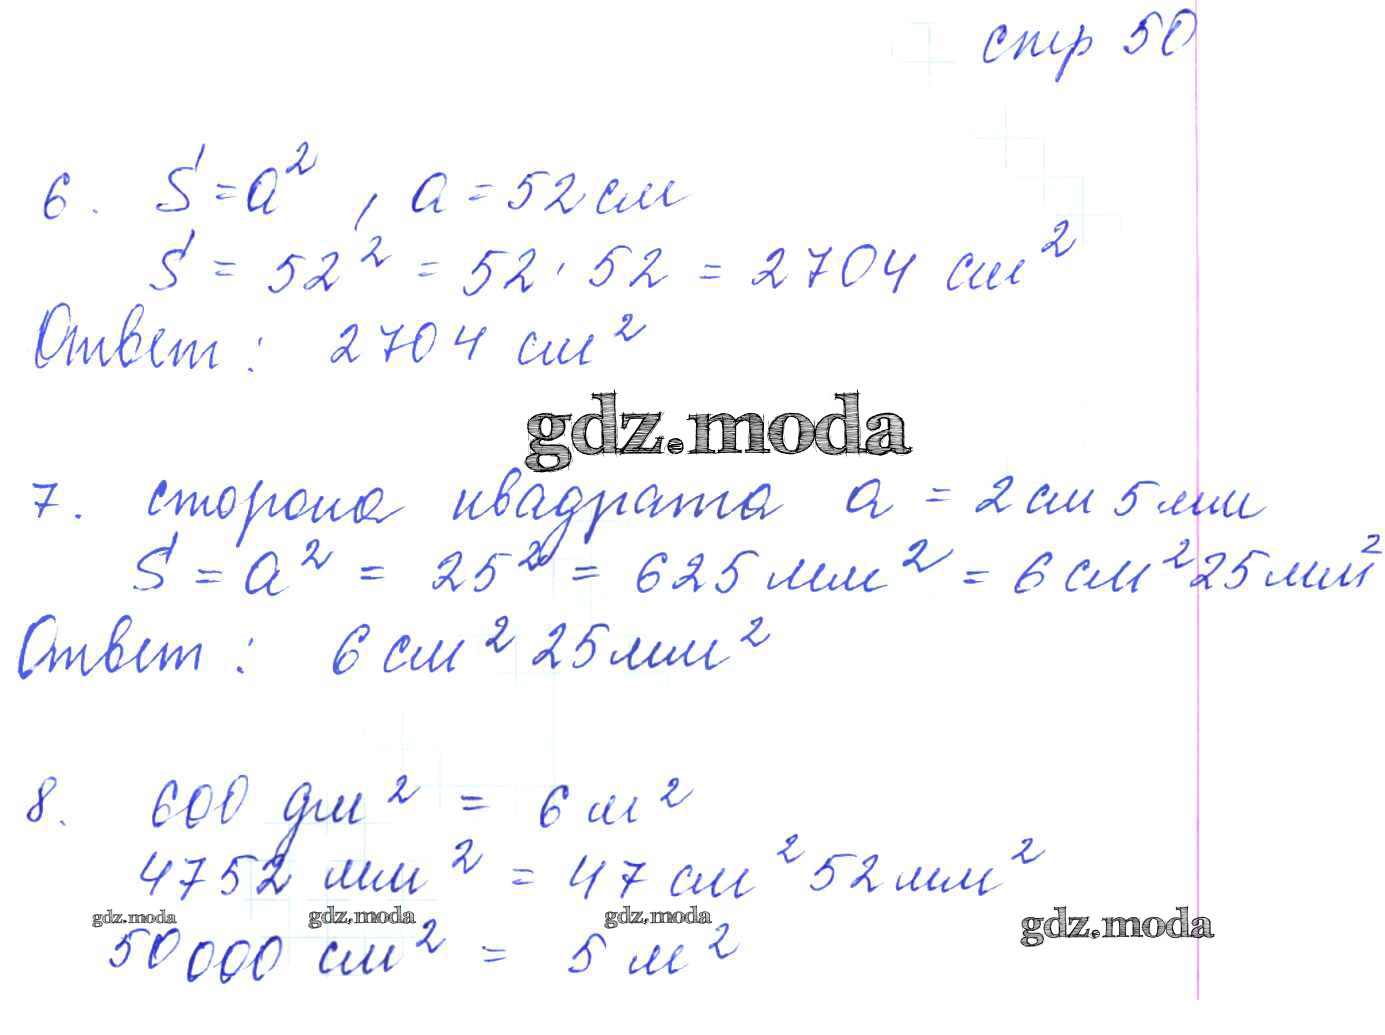 стр 50
6. S = a², a = 52 см
S = 52² = 52 · 52 = 2704 см²
Ответ: 2704 см²
gdz.moda
7. сторона квадрата a = 2 см 5 мм
S = a² = 25² = 625 мм² = 6 см² 25 мм²
Ответ: 6 см² 25 мм²
8. 600 дм² = 6 м²
4752 мм² = 47 см² 52 мм²
gdz.moda gdz.moda gdz.moda gdz.moda
50 000 см² = 5 м²